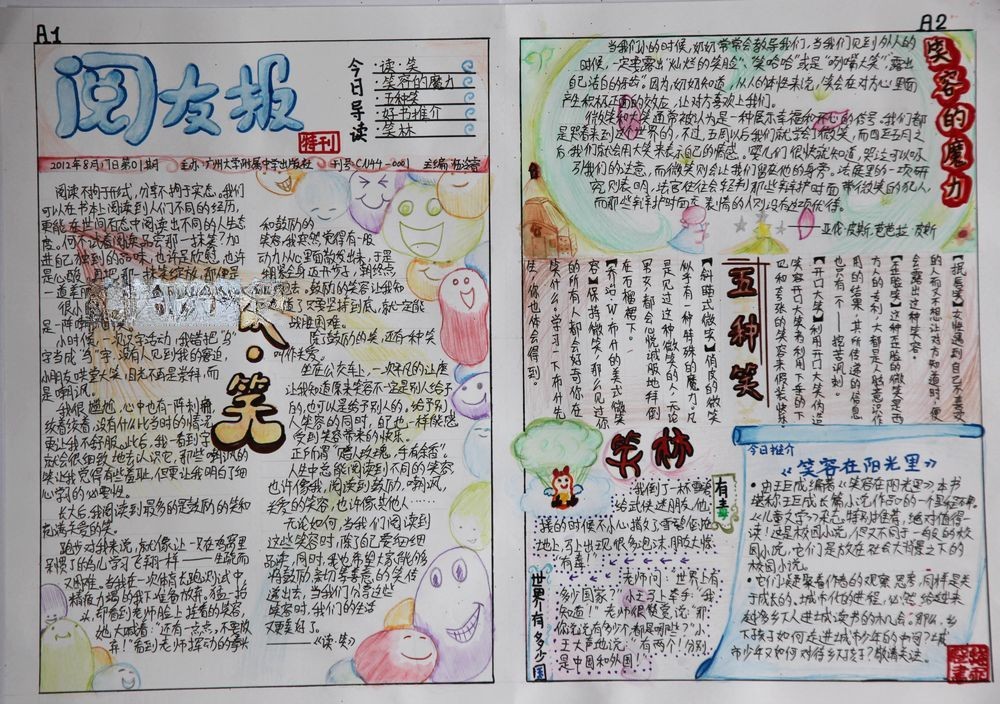 A1
阅友报
特刊
今日导读
·读·笑
·笑容的魔力
·五种笑
·好书推介
·笑林
2012年8月17日第01期 主办:广州大学附属中学出版社 刊号CN44-0001 主编:
阅读不拘于形式,分享不拘于实态。我们
可以在书本上阅读到人们不同的经历,
更能在世间百态中阅读出不同的人生态
度。何不试着阅读品尝那一抹笑?加
进自己独到的品味,也许是欣慰,也许
是一阵
小时候,一次汉字活动,我错把"乌"
字看成"鸟"字。没有人见到我的窘迫,
小朋友哄堂大笑,目光不再是崇拜,而
是嘲讽。
我很尴尬,心中也有一阵刺痛,
续着续着,没有什么比当时的情
更让我不舒服。此后,我一看到字
就会很细致地去认识它,那些嘲讽的
笑让我觉得有些羞耻,但更让我明白了细
心学习的必要性。
长大后,我阅读到最多的是鼓励的笑和
充满关爱的笑。
跑步对我来说,就像让一只在鸡窝里
呆惯了的鸟儿学习飞翔一样——生疏而
又困难。当我在一次俯首去跑测试中,
精疲力竭的我下准备放弃。猛一抬
头,却看到老师脸上挂着的笑容,
她大喊着:"还有一点点,不要放
弃!"看到老师挥动的拳头
和鼓励的
笑容,我突然觉得有一股
动力从心里面散发出来,于是
绷紧全身迈开步子,朝终点
去。鼓励的笑容让我知
道了只要坚持到底,就一定能
战胜困难。
除了鼓励的笑,还有一种笑
叫作关爱。
坐在公交车上,一次好的让座
让我知道原来笑容不一定是别人给予
的,也可以是给予别人的。给予别
人笑容的同时,自己也一样能感
受到笑容带来的快乐。
正所谓"赠人玫瑰,手有余香"。
人生中总能阅读到不同的笑容
也许像我,阅读到鼓励,嘲讽,
关爱的笑容,也许像其他人……
无论如何,当我们阅读到
这些笑容时,除了自己要细细
品读,同时,我也希望大家能够
将鼓励、亲切等善意的笑传
递出去,当我们分享这些
笑容时,我们的生活
又更美好了。
——《读·笑》
笑
A2
笑容的魔力
当我们小的时候,奶奶常常会教导我们,当我们见到外人的
时候,一定要露出"灿烂的笑脸"、"笑哈哈"或是"咧嘴大笑",露出
自己洁白的牙齿。因为奶奶知道,从人的本性来说,笑会在对方心里面
产生积极正面的效应,让对方喜欢上我们。
微笑和大笑通常被认为是一种展示幸福和开心的信号。我们都
是哭着来到这个世界的,不过,五周以后我们就学会了微笑,而四至五月之
后,我们就会用大笑来表示自己的情感。婴儿们很快就知道,哭泣可以吸
引我们的注意,而微笑则会让我们留在他的身旁。法庭里的一项研
究则表明,法官往往会轻判那些辩护时面带微笑的犯人,
而那些辩护时面无表情的人则没有这项优待。
——亚伦·皮斯、芭芭拉·皮斯
五种笑
【抿唇笑】女性遇到自己不喜欢
的人而又不想让对方知道时,便
会露出这种笑容。
【歪脸笑】这种歪脸的微笑是西
方人的专利,大都是人脸意识作
用的结果,其所传递的信息
也只有一个——挖苦讽刺。
【开口大笑】利用开口大笑伪造
笑容,开口大笑者利用下垂的下
巴和夸张的笑容来假装快乐。
【斜瞄式微笑】俏皮的微笑
似乎有一种特殊的魔力,凡
是见过这种微笑的人,无论
男女都会心悦诚服地拜倒
在石榴裙下。
【乔治·W·布什的美式微笑
容】保持微笑,那么见过你
的所有人都会好奇你在
笑什么。学习一下布什先
生,你也体会得到。
笑林
有毒
我倒了一杯雪碧
给武侠迷朋友,他
接的时候不小心撒了雪碧在
地上,马上出现很多泡沫,朋友大惊
:"有毒!"
世界有多少国
老师问:"世界上有
多少国家?"小王马上举手:"我
知道!"老师很赞赏说:"那
你说说有多少个,都是哪些?"小
王大声地说:"有两个!分别
是中国和外国!"
今日推介
《笑容在阳光里》
·由王巨成编著《笑容在阳光里》本书
堪称王巨成长篇小说作品中的一个里程碑。
《儿童文学》杂志特别推荐,绝对值得一
读!这是校园小说,但又不同于一般的校
园小说,它们是放在社会大背景之下的
校园小说。
·它们凝聚着作者的观察、思索,同样是关
于成长的。城市化的进程,必然给越来
越多乡下人进城读书的机会。那么,乡
下孩子如何走进城市少年的中间?城
市少年又如何对待乡下孩子?敬请关注。